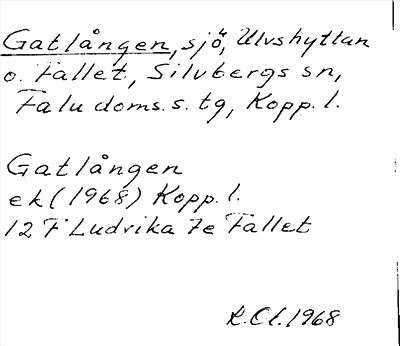 Gatlången, sjö, Ulvshyttan
o. Fallet, Silvbergs sn,
Falu doms. s. tg, Kopp. l.
Gatlången
ek (1968) Kopp. l.
12 F Ludvika 7e Fallet
R.Cl. 1968